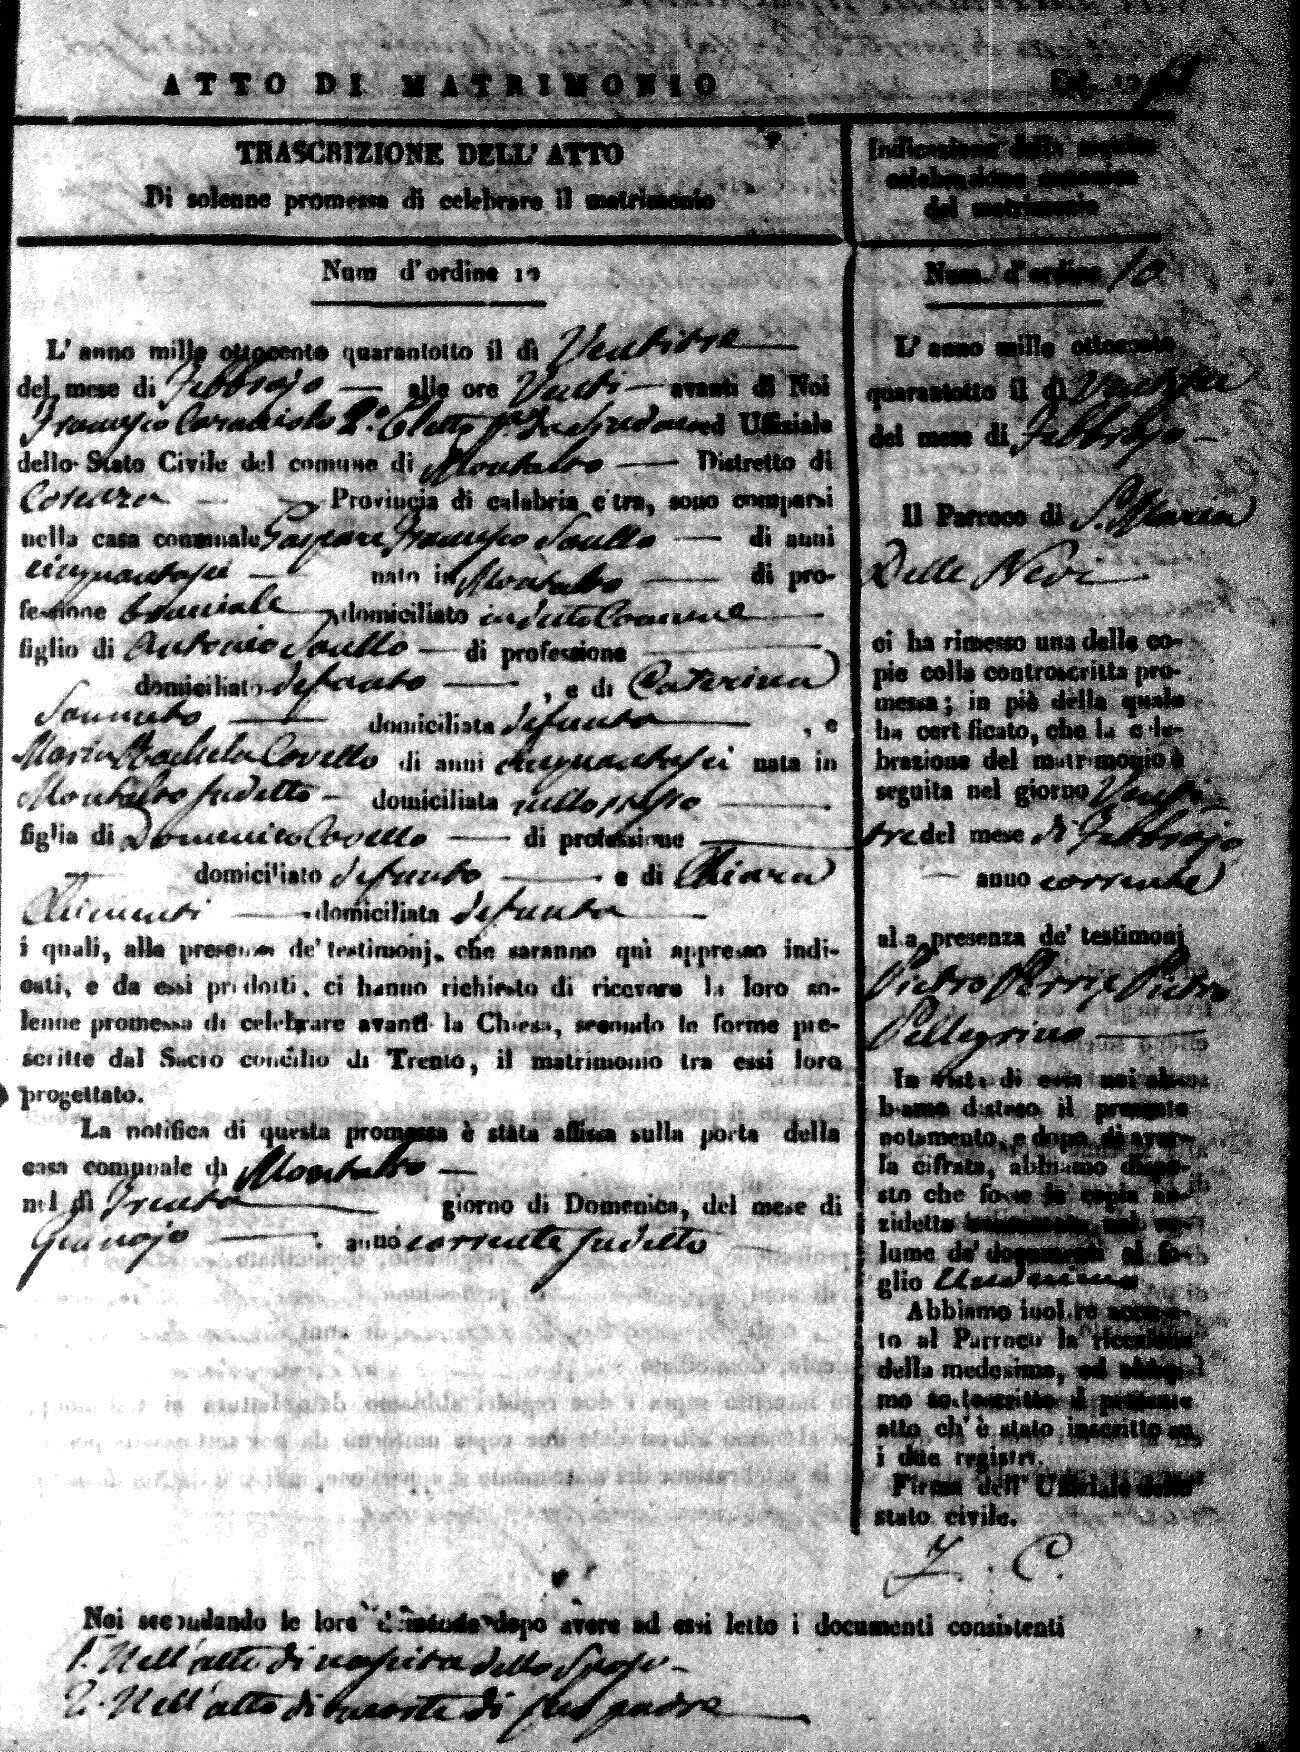 ATTO DI MATRIMONIO
TRASCRIZIONE DELL' ATTO
Di solenne promessa di celebrare il matrimonio
Num d'ordine 10
L' anno mille ottocento quarantotto il dì Ventitre
del mese di Febbrajo — alle ore Venti — avanti di Noi
Francesco Caracciolo 2.° Eletto ed Uffiziale
dello Stato Civile del comune di Montalto — Distretto di
Cosenza — Provincia di calabria citra, sono comparsi
nella casa comunale Gaspare Francesco Saullo — di anni
cinquantasei — nato in Montalto — di pro-
fessione bracciale domiciliato in detto Comune
figlio di Antonio Saullo — di professione —
domiciliato defunto — , e di Caterina
— domiciliata defunta — , e
Maria Covello di anni cinquantasei nata in
Montalto sudetto — domiciliata nello stesso —
figlia di Domenico Covello — di professione —
domiciliato defunto — e di Chiara
Chimenti — domiciliata defunta —
i quali, alla presenza de' testimonj, che saranno quì appresso indi-
cati, e da essi prodotti, ci hanno richiesto di ricevere la loro so-
lenne promessa di celebrare avanti la Chiesa, secondo le forme pre-
scritte dal Sacro concilio di Trento, il matrimonio tra essi loro
progettato.
La notifica di questa promessa è stata affissa sulla porta della
casa comunale di Montalto —
nel dì Trenta — giorno di Domenica, del mese di
Gennajo — . anno corrente sudetto
Noi secondando le loro dopo avere ad essi letto i documenti consistenti
1. Nell'atto di nascita dello Sposo —
2. Nell'atto di morte di suo padre —
Indicazione della seguita
celebrazione canonica
del matrimonio
Num. d'ordine 10
L' anno mille ottocento
quarantotto il dì
del mese di Febbrajo —
Il Parroco di S. Maria
Delle Nevi
ci ha rimesso una delle co-
pie colla controscritta pro-
messa; in piè della quale
ha certificato, che la cele-
brazione del matrimonio è
seguita nel giorno Venti-
tre del mese di Febbrajo
— anno corrente
alla presenza de' testimonj
Pietro Perri e Pietro
Pellegrino —
In vista di essa noi ab-
biamo disteso il presente
notamento, e dopo di aver-
la cifrata, abbiamo dispo-
sto che fosse la copia an-
zidetta nel vo-
lume de' documenti al fo-
glio
Abbiamo inoltre accusa-
to al Parroco la ricezione
della medesima, ed abbia-
mo sottoscritto il presente
atto, ch' è stato inscritto su
i due registri.
Firma dell' Uffiziale dello
stato civile.
F. C.